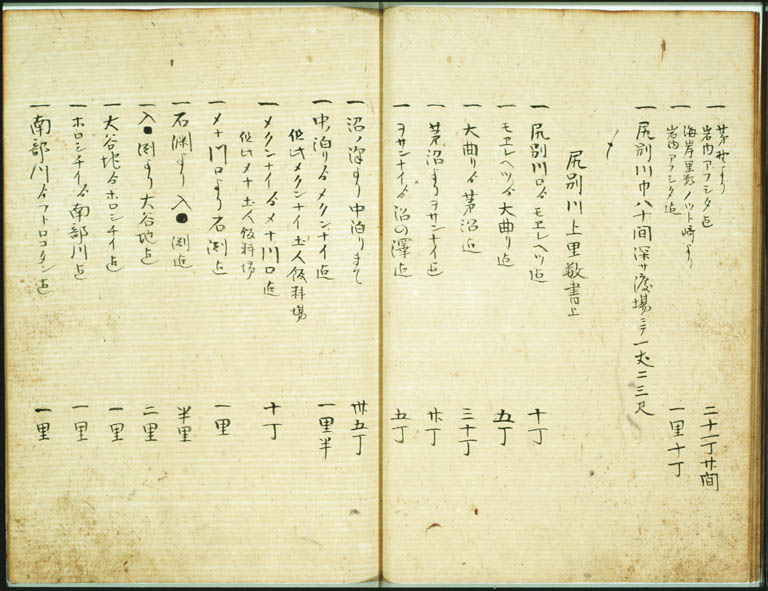 一 茅野より
岩内アフシタ迄 二十一丁廿間
海岸里数ノット崎より
一 岩内アフシタ迄 一里十丁
一 尻別川巾八十間深サ渡場ニテ一丈二三尺
尻別川上里数書上
一 尻別川口ゟモエレヘツ迄 十丁
一 モエレヘツゟ大曲り迄 五丁
一 大曲りゟ茅沼迄 三十丁
一 茅沼よりヲサンナイ迄 廿丁
一 ヲサンナイゟ沼の澤迄 五丁
一 沼ノ澤より中泊りまて 廿五丁
一 中泊りゟメクンナイ迄 一里半
但此メクンナイ土人飯料場
一 メクンナイゟメナ川口迄 十丁
但此メナ土人飯料場
一 メナ川口より石渕迄 一里
一 石渕より入●渕迄 半里
一 入●渕より大谷地迄 二里
一 大谷地ゟホロシチイ迄 一里
一 ホロシチイゟ南部川迄 一里
一 南部川ゟフトロコタン迄 一里